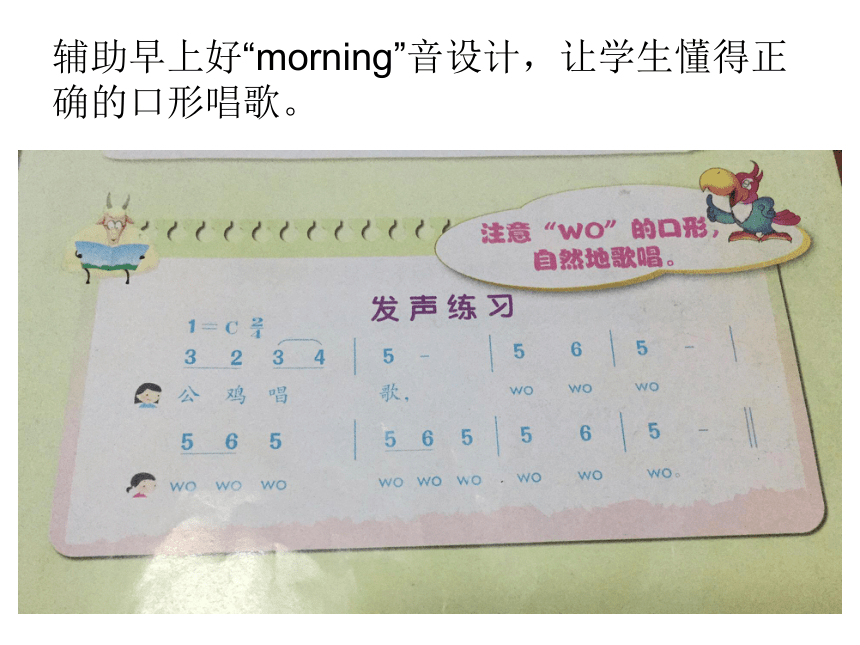 辅助早上好“morning”音设计，让学生懂得正
确的口形唱歌。
注意“WO”的口形，
自然地歌唱。
发声练习
1=C 2/4
3 2 3 4 | 5 - | 5 6 | 5 - |
公 鸡 唱 歌， wo wo wo
5 6 5 | 5 6 5 | 5 6 | 5 - ‖
wo wo wo wo wo wo wo wo wo。